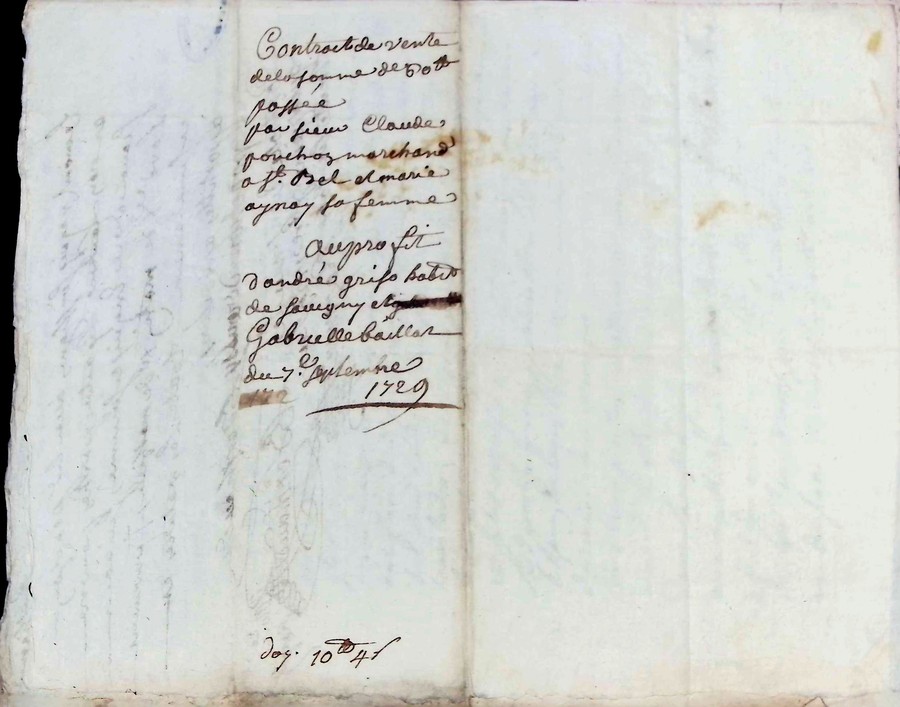 Contract de vente
de la somme de 50 tt
passée
par sieur Claude
ponchon marchand
a St. Bel et marie
aynay sa femme
au profit
d'andré griso habit
de savigny et
Gabrielle baillat
du 7.e septembre
172
1729
10 tt 4 s